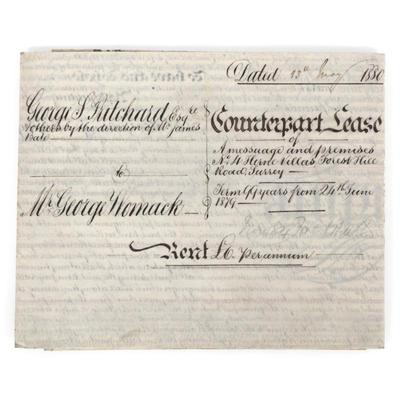 Dated 13th May 1880
George S Pritchard Esqre
& others by the direction of Mr James
Bate
to
Mr George Womack
Counterpart Lease
of
A messuage and premises
No. 4 Herne Villas Forest Hill
Road, Surrey
Term 99 years from 24th June
1879
Rent £6 per annum